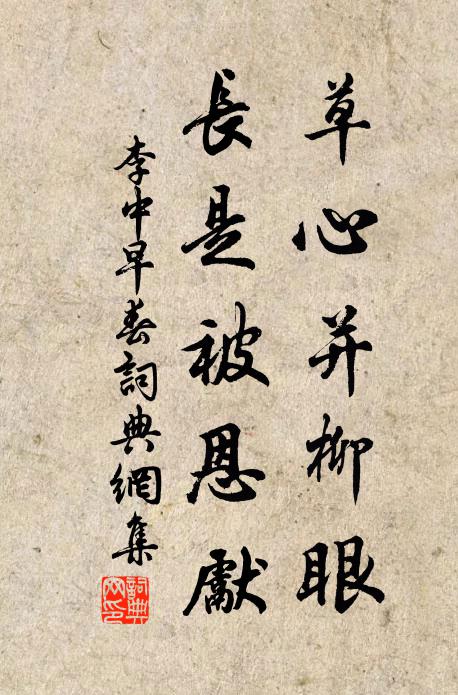 草心并柳眼
長是被恩獻
李中早春詞典網集
詞典网印